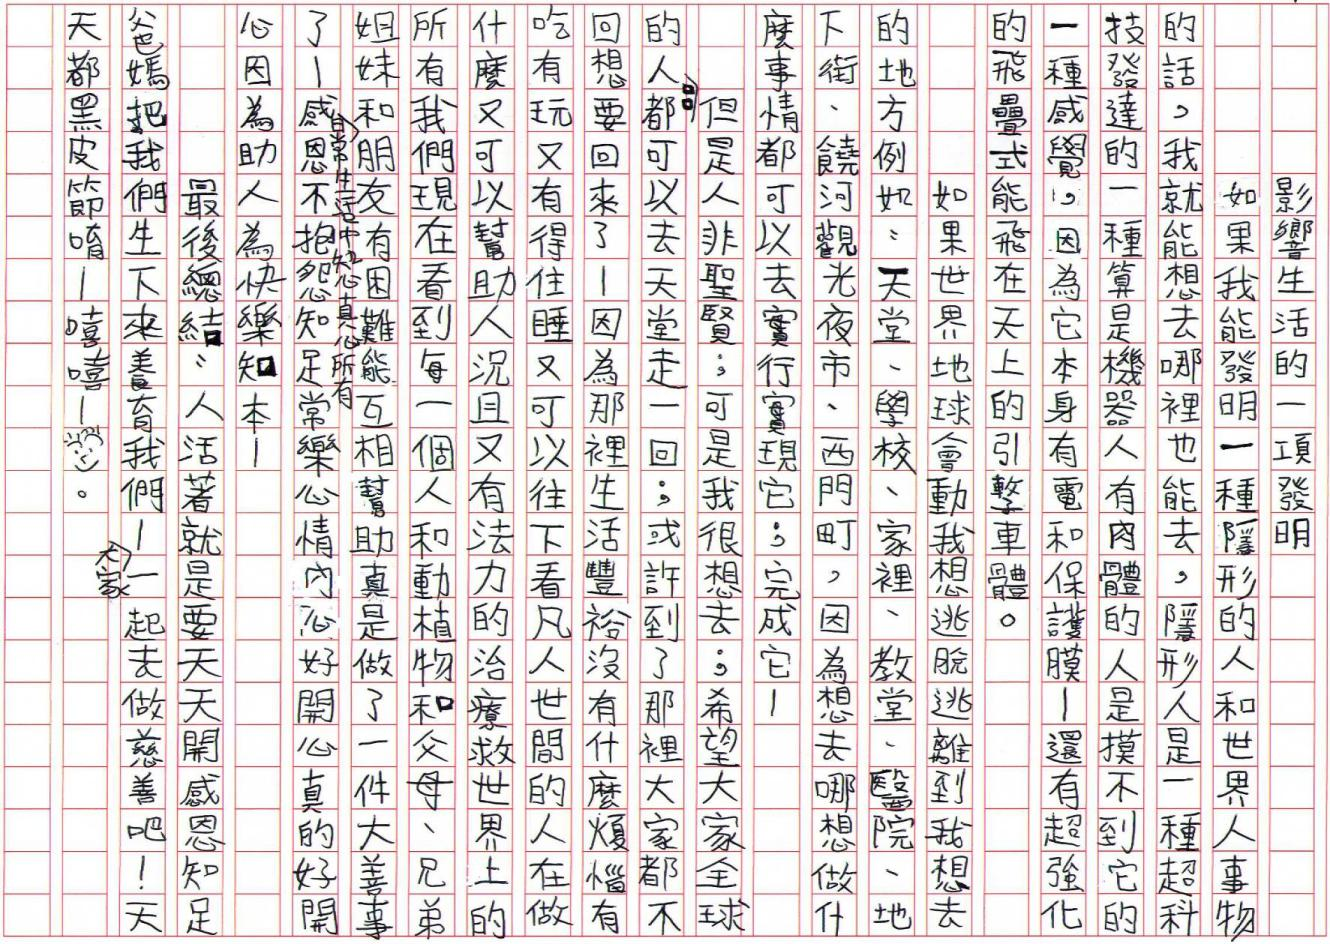 影響生活的一項發明
如果我能發明一種隱形的人和世界人事物
的話，我就能想去哪裡也能去，隱形人是一種超科
技發達的一種算是機器人有肉體的人是摸不到它的
一種感覺。因為它本身有電和保護膜—還有超強化
的飛疊式能飛在天上的引擎車體。
如果世界地球會動我想逃脫逃離到我想去
的地方例如：天堂、學校、家裡、教堂、醫院、地
下街、饒河觀光夜市、西門町，因為想去哪想做什
麼事情都可以去實行實現它；完成它—
但是人非聖賢；可是我很想去；希望大家全球
的人都可以去天堂走一回；或許到了那裡大家都不
回想要回來了—因為那裡生活豐裕沒有什麼煩惱有
吃有玩又有得住睡又可以往下看凡人世間的人在做
什麼又可以幫助人況且又有法力的治療救世界上的
所有我們現在看到每一個人和動植物和父母、兄弟
姐妹和朋友有困難能互相幫助真是做了一件大善事
日常生活中知心真心所有
了—感恩不抱怨知足常樂心情內心好開心真的好開
心因為助人為快樂知本—
最後總結：人活著就是要天天開感恩知足
爸媽把我們生下來養育我們—一起去做慈善吧！天
大家
天都黑皮節唷—嘻嘻—。